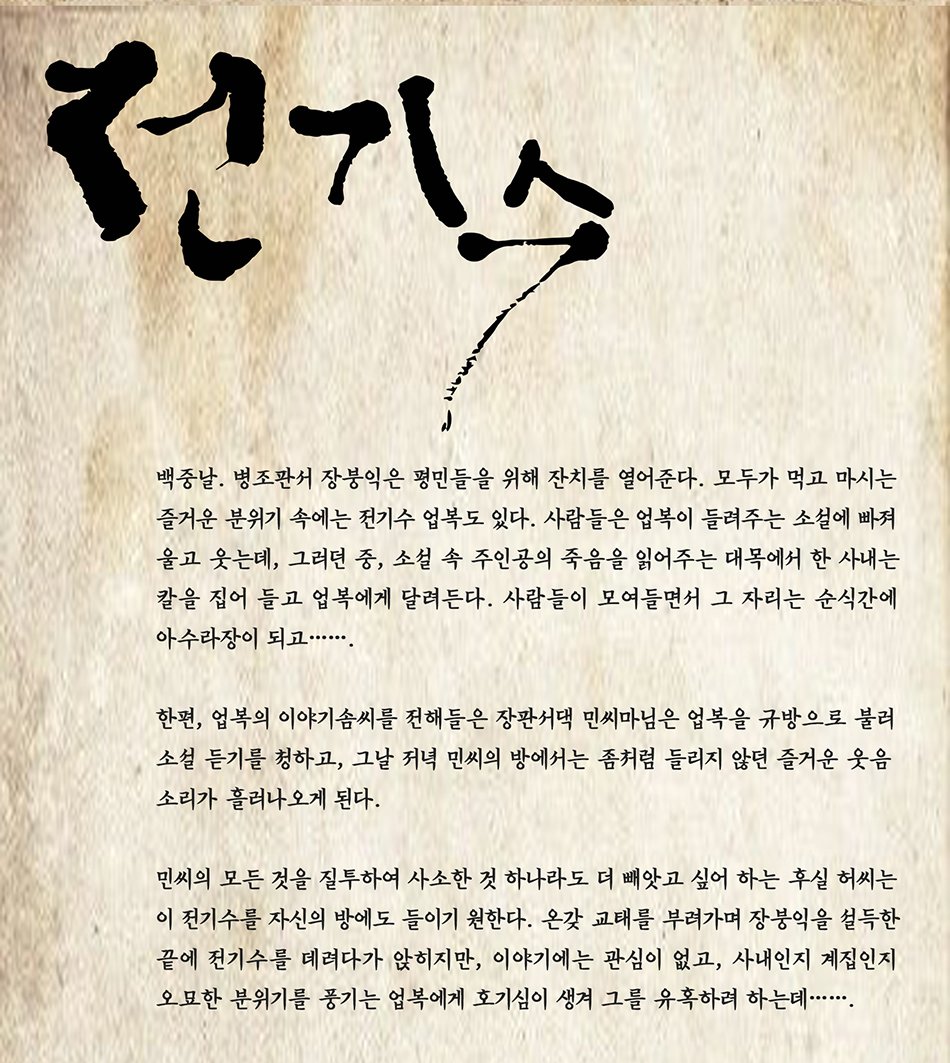 전기수
백중날. 병조판서 장붕익은 평민들을 위해 잔치를 열어준다. 모두가 먹고 마시는
즐거운 분위기 속에는 전기수 업복도 있다. 사람들은 업복이 들려주는 소설에 빠져
울고 웃는데, 그러던 중, 소설 속 주인공의 죽음을 읽어주는 대목에서 한 사내는
칼을 집어 들고 업복에게 달려든다. 사람들이 모여들면서 그 자리는 순식간에
아수라장이 되고…….
한편, 업복의 이야기솜씨를 전해들은 장판서댁 민씨마님은 업복을 규방으로 불러
소설 듣기를 청하고, 그날 저녁 민씨의 방에서는 좀처럼 들리지 않던 즐거운 웃음
소리가 흘러나오게 된다.
민씨의 모든 것을 질투하여 사소한 것 하나라도 더 빼앗고 싶어 하는 후실 허씨는
이 전기수를 자신의 방에도 들이기 원한다. 온갖 교태를 부려가며 장붕익을 설득한
끝에 전기수를 데려다가 앉히지만, 이야기에는 관심이 없고, 사내인지 계집인지
오묘한 분위기를 풍기는 업복에게 호기심이 생겨 그를 유혹하려 하는데…….